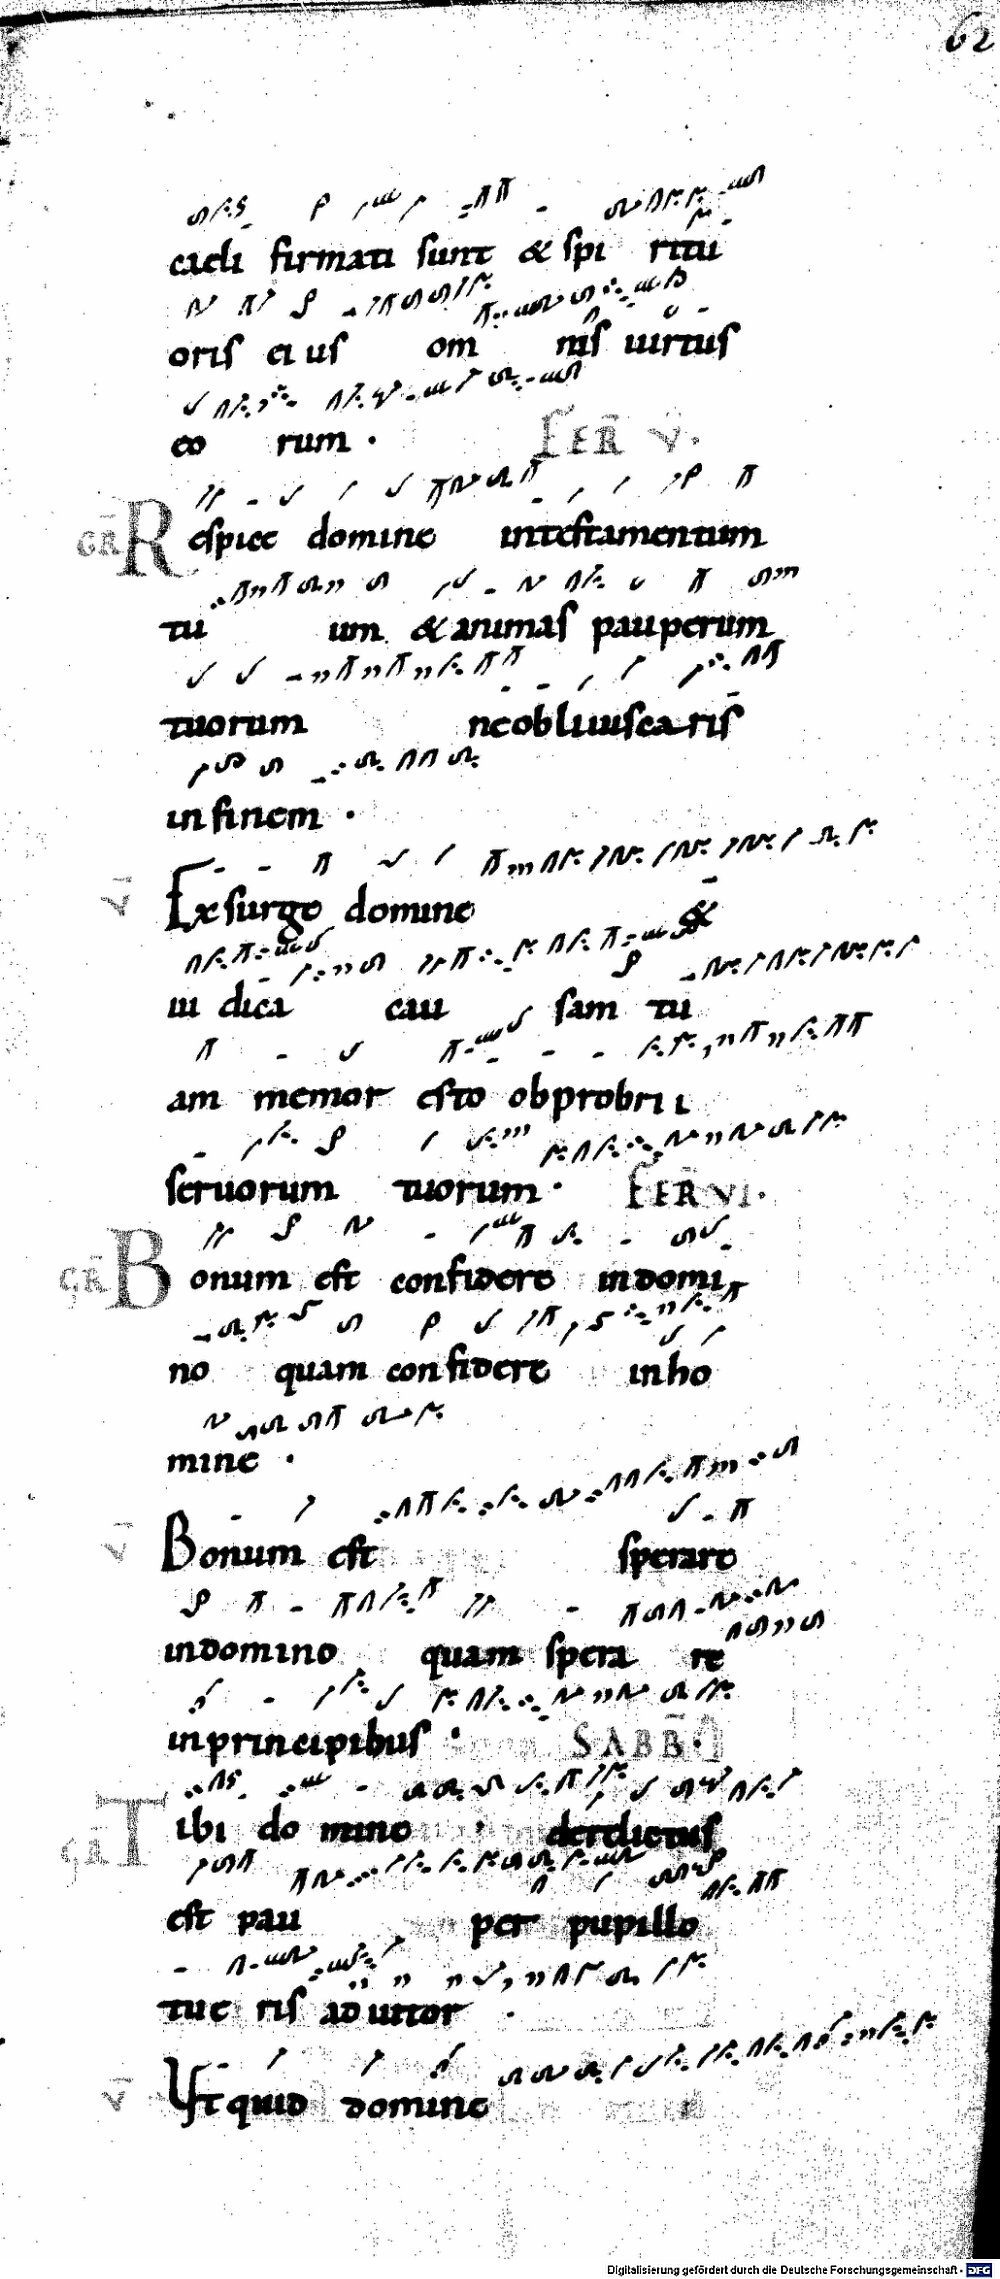 62
caeli firmati sunt & spi ritu
oris ei us om nis uirtus
eo rum · FER V·
GR Respice domine intestamentum
tu um & animas pauperum
tuorum neobliuiscaris
infinem ·
V Exsurge domine &
iu dica cau sam tu
am memor esto obprobri i
seruorum tuorum · FER VI·
GR Bonum est confidere indomi
no quam confidere inho
mine ·
V Bonum est sperare
indomino quam spera re
inprincipibus · SABB·
GR Tibi do mine derelictus
est pau per pupillo
tu e ris adiutor ·
V Ut quid domine
Digitalisierung gefördert durch die Deutsche Forschungsgemeinschaft - DFG